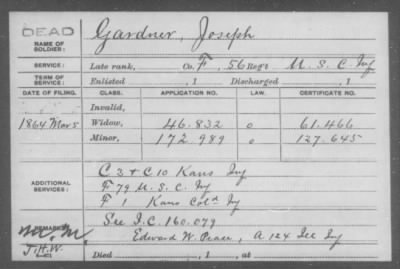 DEAD
Gardner, Joseph
NAME OF SOLDIER:
SERVICE: Late rank, Co. F, 56 Reg't U. S. C. Inf
TERM OF SERVICE: Enlisted , 1 Discharged , 1
DATE OF FILING. CLASS. APPLICATION NO. LAW. CERTIFICATE NO.
Invalid,
1864 Mar 5 Widow, 46.832 o 61.466
Minor, 172.989 o 127.645
C 3 & C 10 Kans Inf
ADDITIONAL SERVICES: F 79 U. S. C. Inf
F 1 Kans Cold Inf
REMARKS: See I.C. 160.079
M.M. Edward W. A 124 Ill Inf
J.H.W.
Died , 1 , at